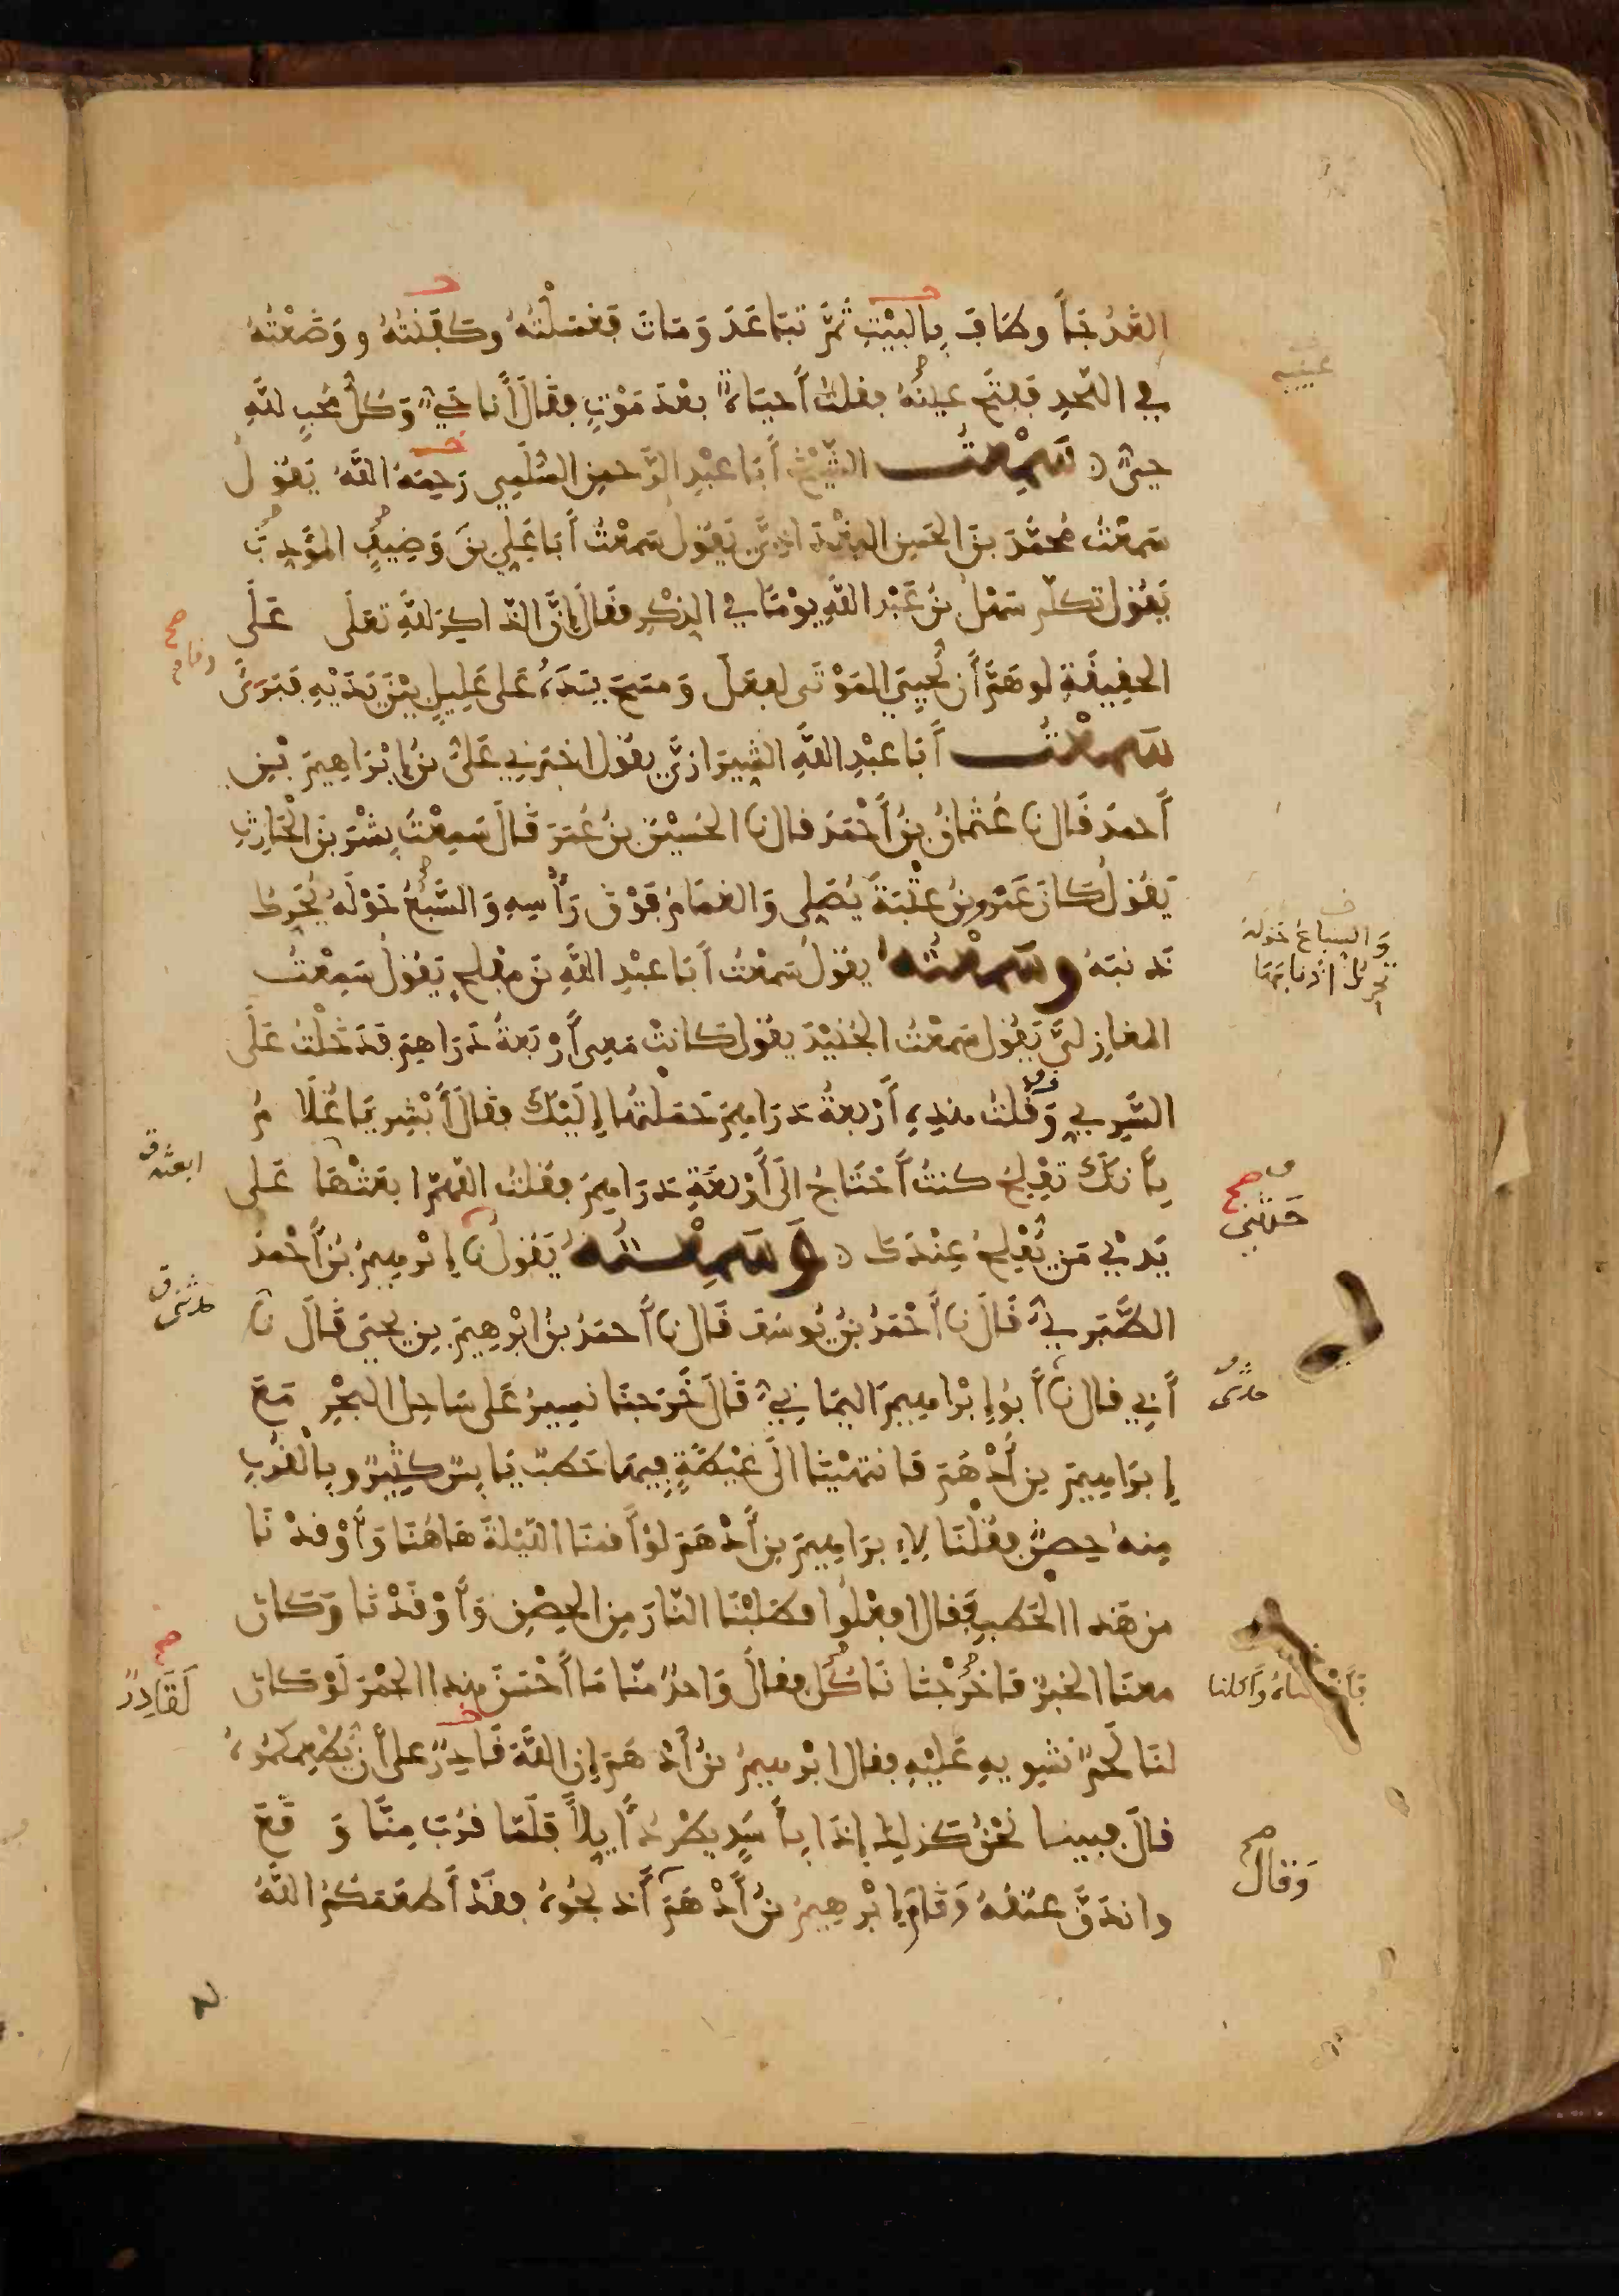 الغد جاء وطاف بالبيت ثم تباعد ومات فغسلته وكفنته ووضعته
في اللحد ففتح عينه فقلت أحياة بعد موت فقال أنا حي وكل محب لله
حي سمعت الشيخ أبا عبد الرحمن السلمي رحمه الله يقول
سمعت محمد بن الحسن البغدادي يقول سمعت أبا علي بن وصيف المؤدب
يقول تكلم سهل بن عبد الله يوما في الذكر فقال إن الذاكر لله تعلى على
الحقيقة لو هم أن يحيي الموتى لفعل ومسح يده على عليل بين يديه فبرئ
وقام
سمعت أبا عبد الله الشيرازي يقول اخبرني علي بن إبراهيم بن
أحمد قال نا عثمان بن أحمد قال نا الحسين بن عمر قال سمعت بشر بن الحارث
يقول كان عمرو بن عتبة يصلي والغمام فوق رأسه والسبع حوله يحرك
والسباع حوله تحرك أذنابها
ذنبه وسمعته يقول سمعت أبا عبد الله بن مفلح يقول سمعت
المغازلي يقول سمعت الجنيد يقول كانت معي أربعة دراهم فدخلت على
السري وقلت هذه أربعة دراهم حملتها إليك فقال أبشر يا غلام
بأنك تفلح كنت أحتاج الى أربعة دراهم فقلت اللهم ابعثها على
ابعثه
يدي من يفلح عندك وسمعته يقول نا إبرهيم بن أحمد
حدثني
الطبري قال نا أحمد بن يوسف قال نا أحمد بن ابرهيم بن يحيى قال نا
حدثني
أبي قال نا أبو إبراهيم اليماني قال خرجنا نسير على ساحل البحر مع
حدثني
إبراهيم بن أدهم فانتهينا الى غيطة فيها حطب يابس كثير وبالقرب
منه حصن فقلنا لإبراهيم بن أدهم لو أقمنا الليلة هاهنا وأوقدنا
من هذا الحطب فقال افعلوا فطلبنا النار من الحصن وأوقدنا وكان
معنا الخبز فاخرجنا نأكل فقال واحد منا ما أحسن هذا الجمر لو كان
لقادر
لنا لحم نشويه عليه فقال ابرهيم بن أدهم إن الله قادر على أن يطعمكموه
قال فبينا نحن كذلك إذا بأسد يطرد أيلا فلما قرب منا وقع
واندق عنقه وقام إبرهيم بن أدهم أذبحوه فقد أطعمكم الله
وقال